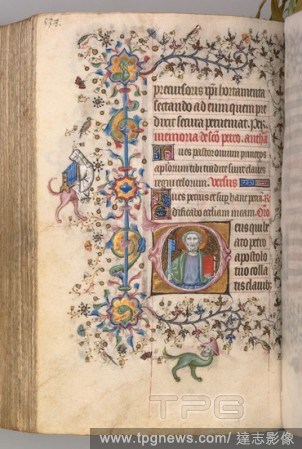 precursoris tui hortamenta
sectando ad eum quem pre
dixit secura perveniat. Per
memoria de sco petro. antiffa
Tu es pastor ovium princeps
aplorum tibi tradite sunt claves
regni celorum. versus
Tu es petrus et sup hanc petrā
edificabo eccliam meam. Oro
eus qui be
ato petro
apostolo
tuo colla
tis clavib;
TPG
www.tpgnews.com/ 達志影像